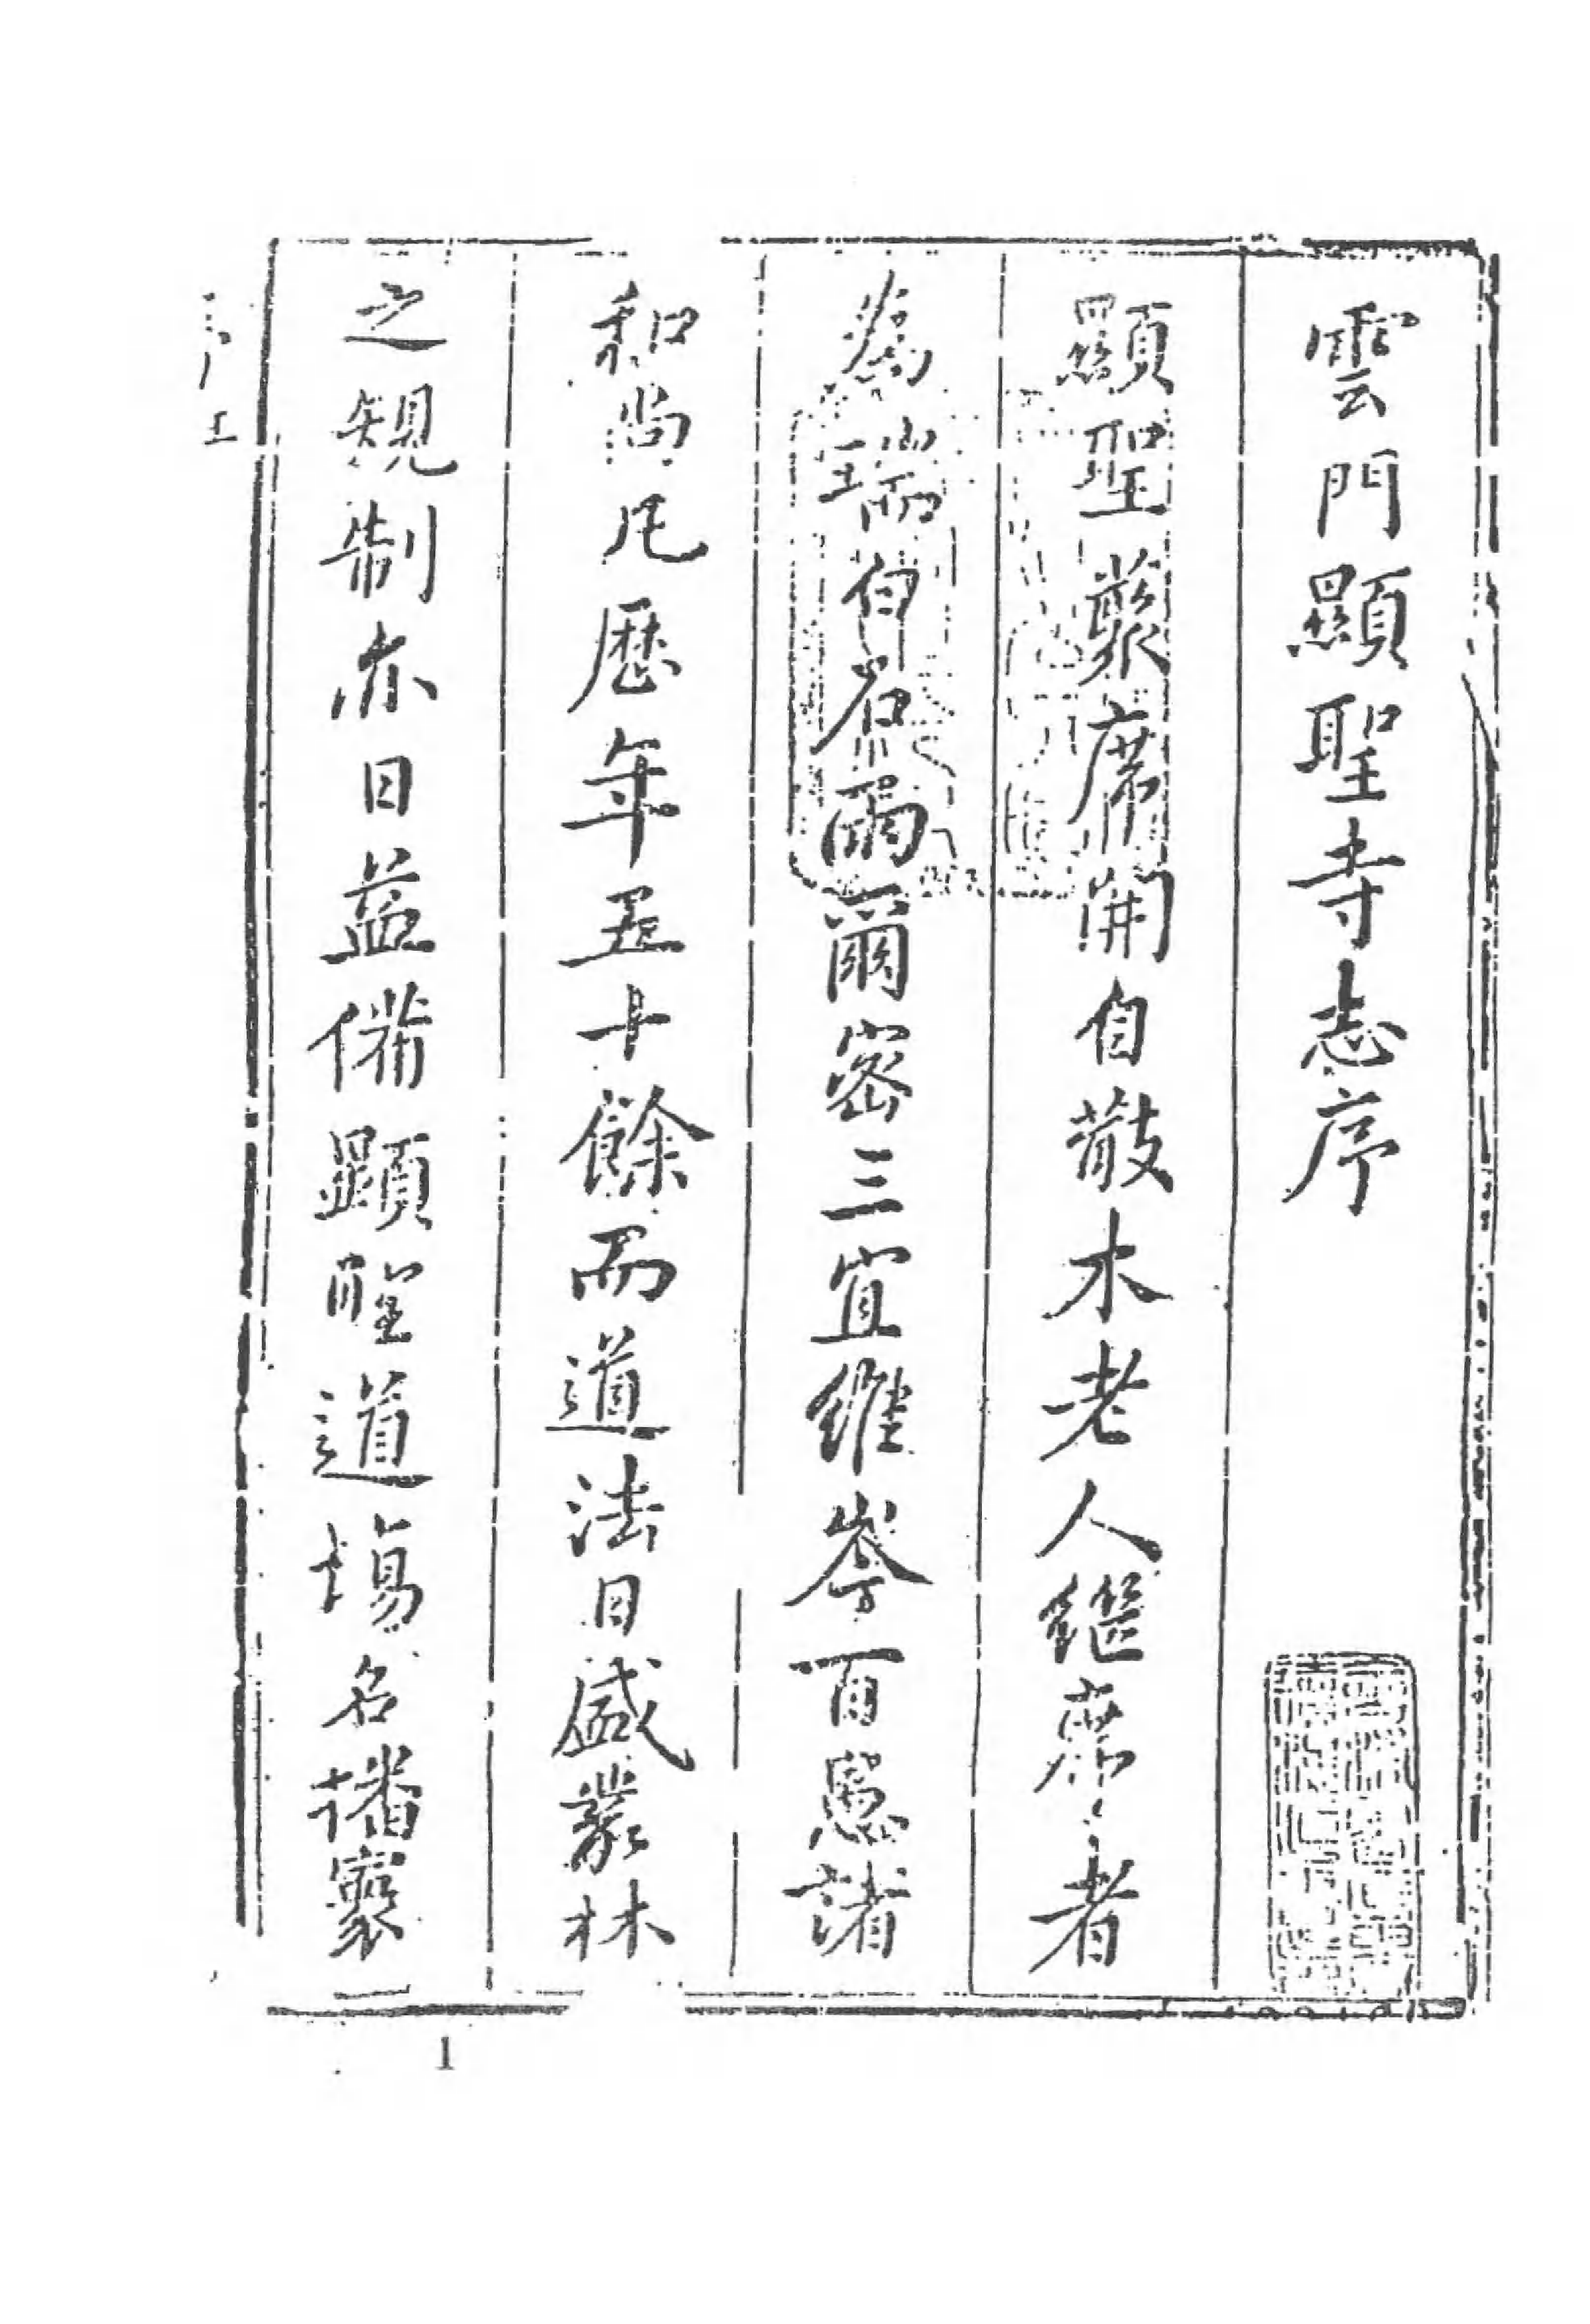 雲門顯聖寺志序
顯聖叢席開自散木老人繼席者
為瑞白石雨爾密三宜維岑百愚諸
和尚凡歷年五十餘而道法日盛叢林
之規制亦日益備顯聖道場名播寰
序 上
1